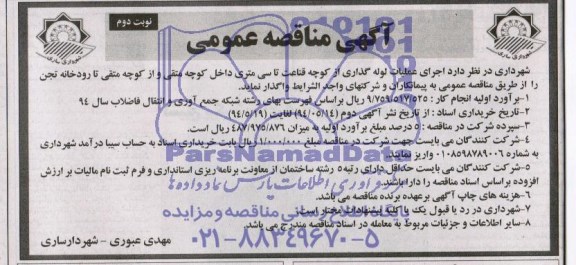 نوبت دوم
آگهی مناقصه عمومی
شهرداری ساری
شهرداری در نظر دارد اجرای عملیات لوله گذاری از کوچه قناعت تا سی متری داخل کوچه متقی و از کوچه متقی تا رودخانه تجن
را از طریق مناقصه عمومی به پیمانکاران و شرکتهای واجد الشرایط واگذار نماید.
۱-برآورد اولیه انجام کار : ۹/۷۵۹/۵۱۷/۵۲۵ ریال براساس فهرست بهای رشته شبکه جمع آوری و انتقال فاضلاب سال ۹۴
۲-تاریخ خریداری اسناد : از تاریخ نشر آگهی دوم (۹۴/۰۵/۱۴) لغایت (۹۴/۵/۱۹)
۳-سپرده شرکت در مناقصه : ۵ درصد مبلغ برآورد اولیه به میزان ۴۸۷/۹۷۵/۸۷۶ ریال است.
۴-شرکت کنندگان می بایست جهت شرکت در مناقصه مبلغ ۱/۰۰۰/۰۰۰ ریال بابت خریداری اسناد به حساب سیبا درآمد شهرداری
به شماره ۰۱۰۸۵۹۸۷۸۹۰۰۶ واریز نمایند.
۵-شرکت کنندگان می بایست حداقل دارای رتبه ۵ رشته ساختمان از معاونت برنامه ریزی استانداری و فرم ثبت نام مالیات بر ارزش
افزوده براساس اسناد مناقصه را دارا باشند.
۶-هزینه های چاپ آگهی برعهده برنده مناقصه می باشد.
۷-شهرداری در رد یا قبول یک یا کلیه پیشنهادات مختار است.
۸-سایر اطلاعات و جزئیات مربوط به معامله در اسناد مناقصه مندرج می باشد.
مهدی عبوری - شهردار ساری
ParsNamadData
گردآوری اطلاعات پارس نماد داده ها
پایگاه اطلاع رسانی مناقصه و مزایده
۰۲۱-۸۸۳۴۹۶۷۰-۵